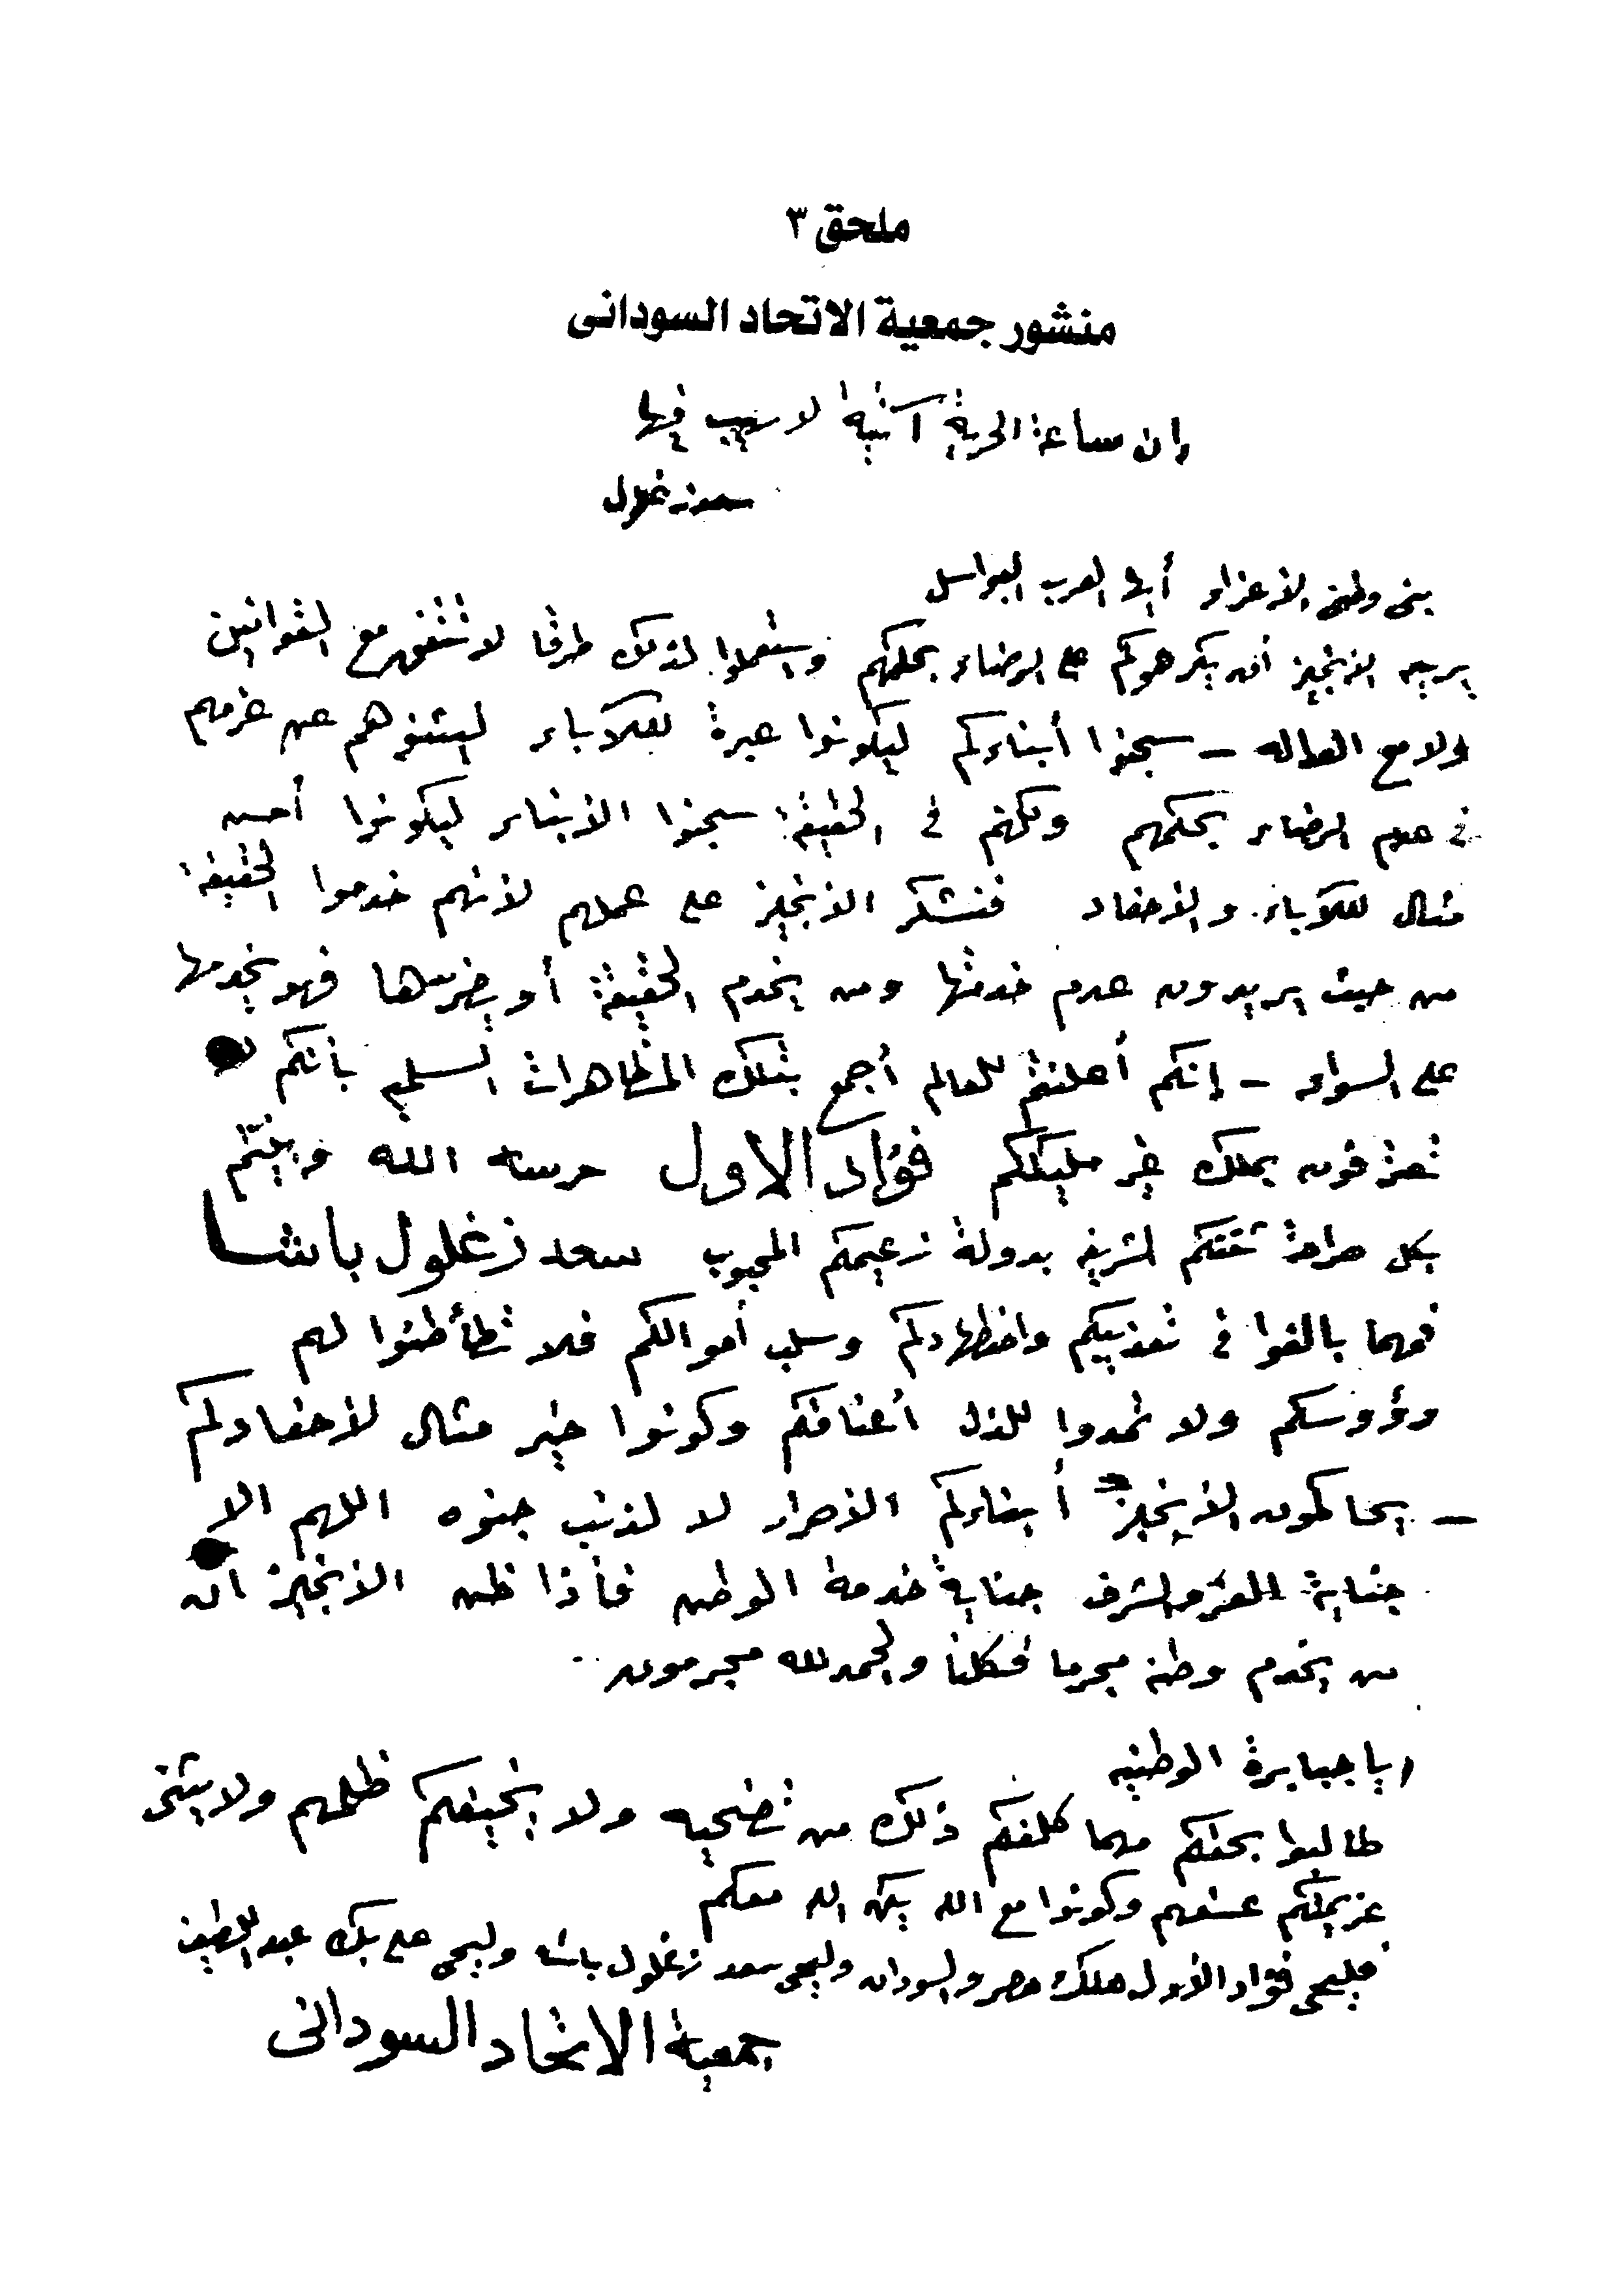 ملحق ٣
منشور جمعية الاتحاد السودانى
وان ساعة الحرية آتية لا ريب فيها
سعد زغلول
بنى وطنى الأعزاء أبناء العرب البواسل
يريد الانجليز أن يكرهوكم على الرضاء بحكمهم واستعملوا لذلك طرقا لا تتفق مع القوانين
ولا مع العداله – سجنوا أبناءكم ليكونوا عبرة للآباء ليثنوهم عن عزمهم
فى عدم الرضاء بحكمهم ولكنهم فى الحقيقة سجنوا الابناء ليكونوا أحسن
مثال للآباء والأحفاد فنشكر الانجليز على عملهم لأنهم خدموا الحقيقة
من حيث يريدون عدم خدمتها ومن يخدم الحقيقة أو يضرها فهو يخدمها
على السواء – إنكم أعلنتم للعالم أجمع بتلك المظاهرات السلميه بأنكم لا
تعترفون بملك غير مليككم فؤاد الاول حرسه الله وبينتم
بكل صراحة ثقتكم الشريفه بدولة زعيمكم المحبوب سعد زغلول باشا
فمهما بالغوا فى تعذيبكم واضطهادكم وسلب أموالكم فلا تطأطئوا لهم
رؤوسكم ولا تمدوا للذل أعناقكم وكونوا خير مثال لأحفادكم
– يحاكمون الانجليز أبناءكم الأحرار لا لذنب جنوه اللهم الا
جناية العز والشرف جناية خدمة الوطن فأذا ظن الانجليز ان
من يخدم وطنه مجرما فكلنا والحمد لله مجرمون..
يا جبابرة الوطنيه
طالبوا بحقكم مهما كلفكم ذلك من تضحيه ولا يخيفكم ظلمهم ولا يثنى
عزيمتكم عسفهم وكونوا مع الله يكن الله معكم
فليحى فؤاد الأول ملك مصر والسودان وليحى سعد زغلول باشا وليحى على بك عبد اللطيف
جمعية الاتحاد السودانى